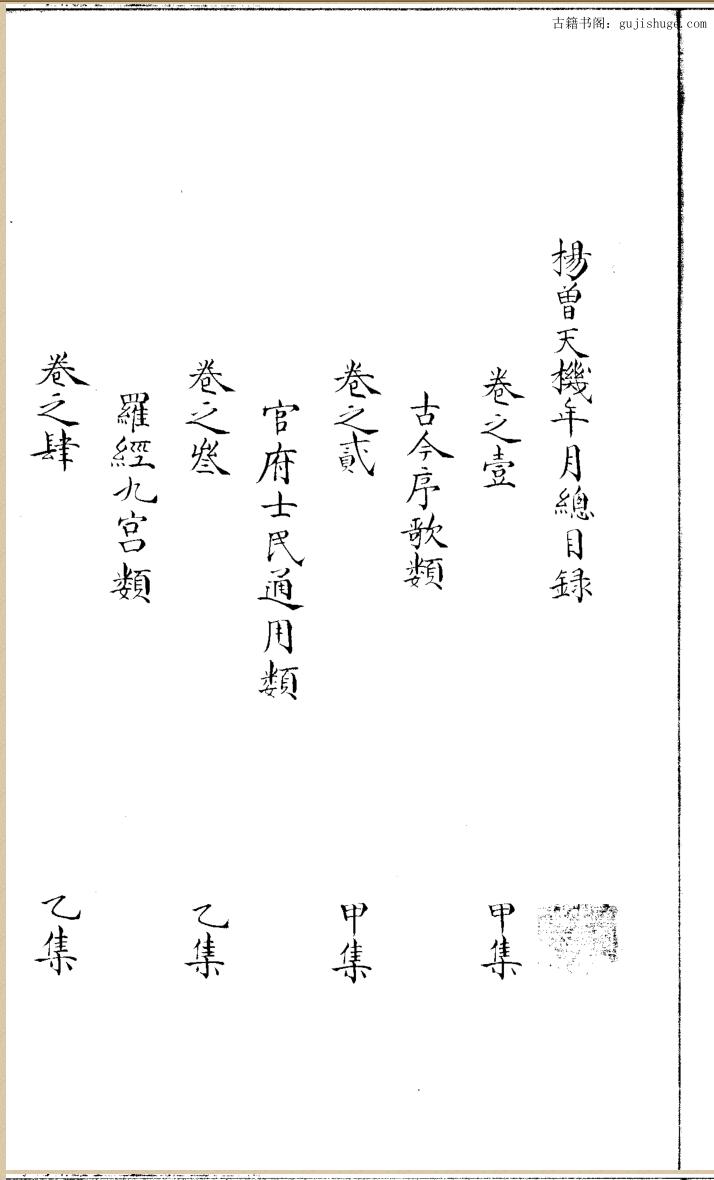 古籍书阁：gujishuge.com
楊曾天機年月總目録
卷之壹 甲集
古今序歌類
卷之貳 甲集
官府士民通用類
卷之叄 乙集
羅經九宫類
卷之肆 乙集